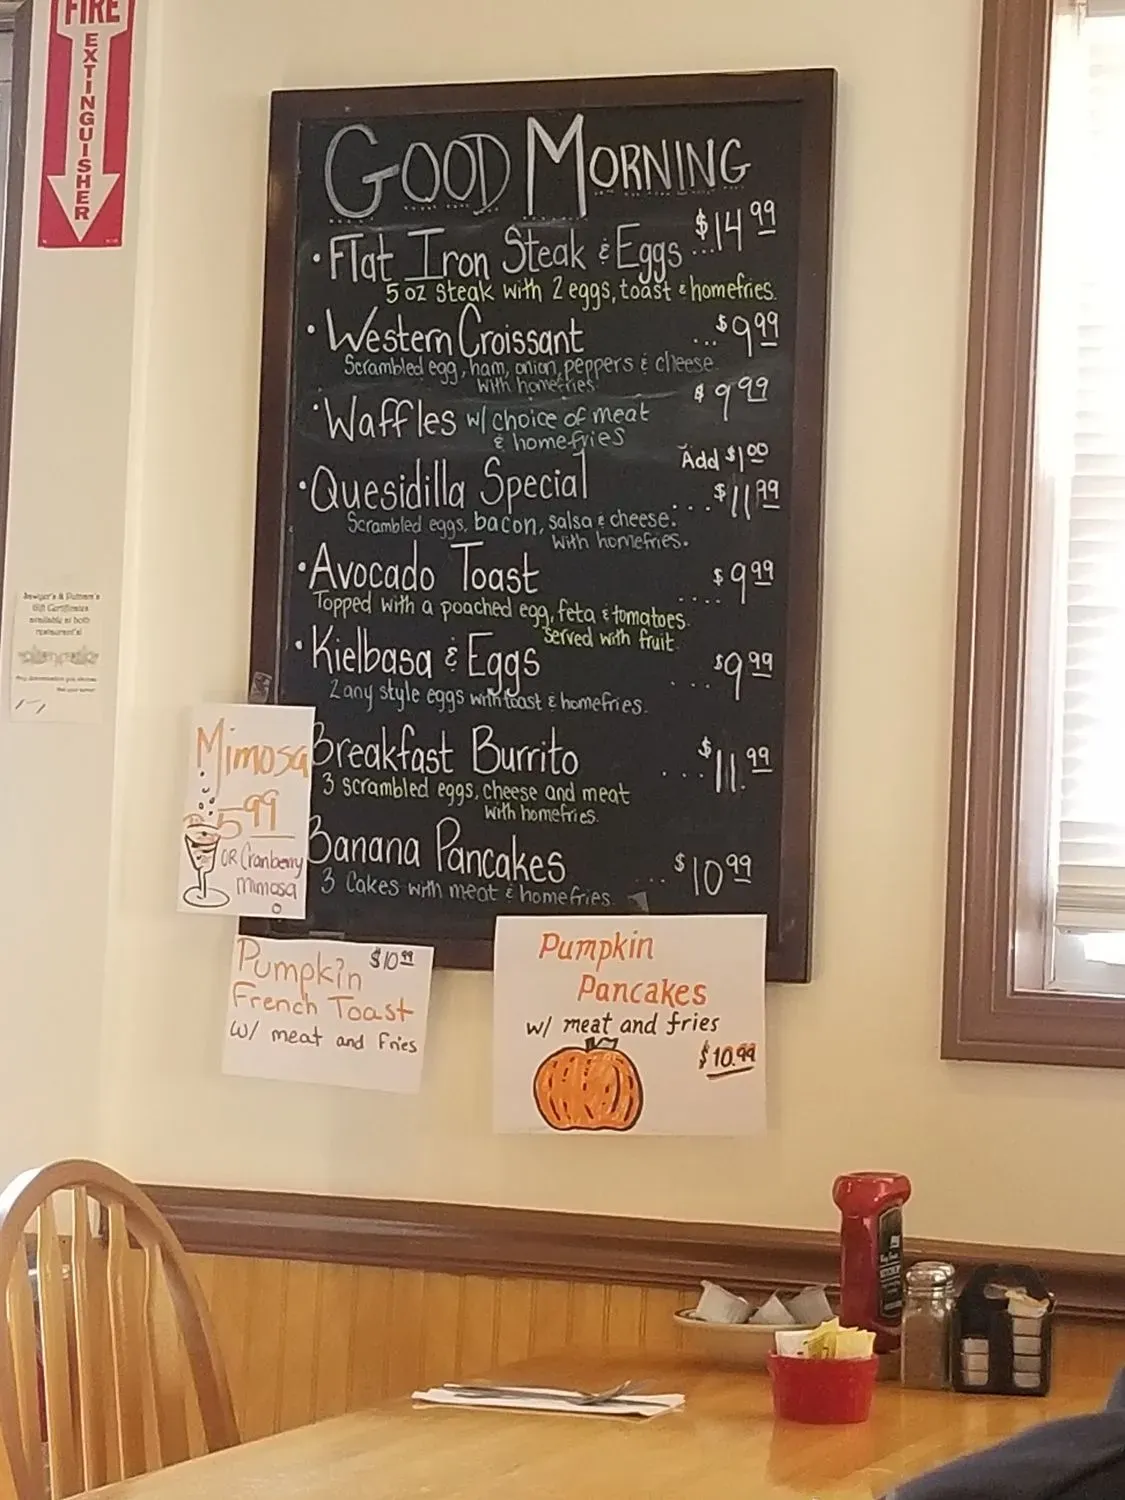 FIRE
EXTINGUISHER
GOOD MORNING
• Flat Iron Steak & Eggs ... $14.99
5 oz steak with 2 eggs, toast & homefries.
• Western Croissant ... $9.99
Scrambled egg, ham, onion, peppers & cheese
with homefries
• Waffles w/ choice of meat $9.99
& homefries
Add $1.00
• Quesidilla Special .... $11.99
Scrambled eggs, bacon, salsa & cheese.
with homefries.
• Avocado Toast .... $9.99
Topped with a poached egg, feta & tomatoes.
Served with fruit
• Kielbasa & Eggs ... $9.99
2 any style eggs with toast & homefries.
Breakfast Burrito ... $11.99
3 scrambled eggs, cheese and meat
with homefries.
Banana Pancakes ... $10.99
3 Cakes with meat & homefries
Mimosa
5.99
OR Cranberry
Mimosa
Pumpkin $10.99
French Toast
w/ meat and fries
Pumpkin
Pancakes
w/ meat and fries
$10.99
Gift Certificates
available at both
restaurants!